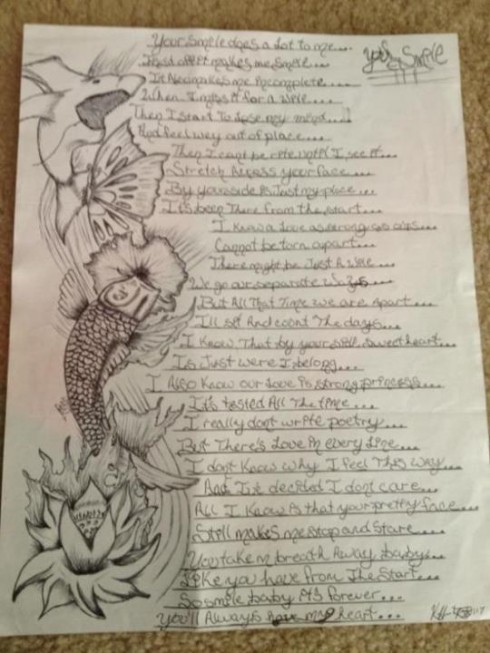 Your Smile
Your smile does a lot to me...
Most of it makes me smile...
It Also makes me incomplete...
When I miss it for a wile....
Then I start To lose my mind....
And feel wey out of place....
Then I cant be rite until I see it...
Stretch Across your face....
By your side is Just my place...
It's been There from the start...
I know a love as strong as ours...
Cannot be torn apart...
There might be Just A wile...
We go our separate ways...
But All That Time we are Apart...
I'll sit And count The days...
I Know That by your side, sweetheart...
Is Just were I belong...
I Also Know our love is strong princess...
It's tested All The time...
I really dont write poetry...
But There's Love in every Line...
I dont Know why I feel This way...
And I've decided I dont care...
All I Know is that your pretty face...
Still makes me stop and Stare...
You take m breath Away baby...
Like you have From The Start...
So smile baby it's forever...
You'll Always have my heart...